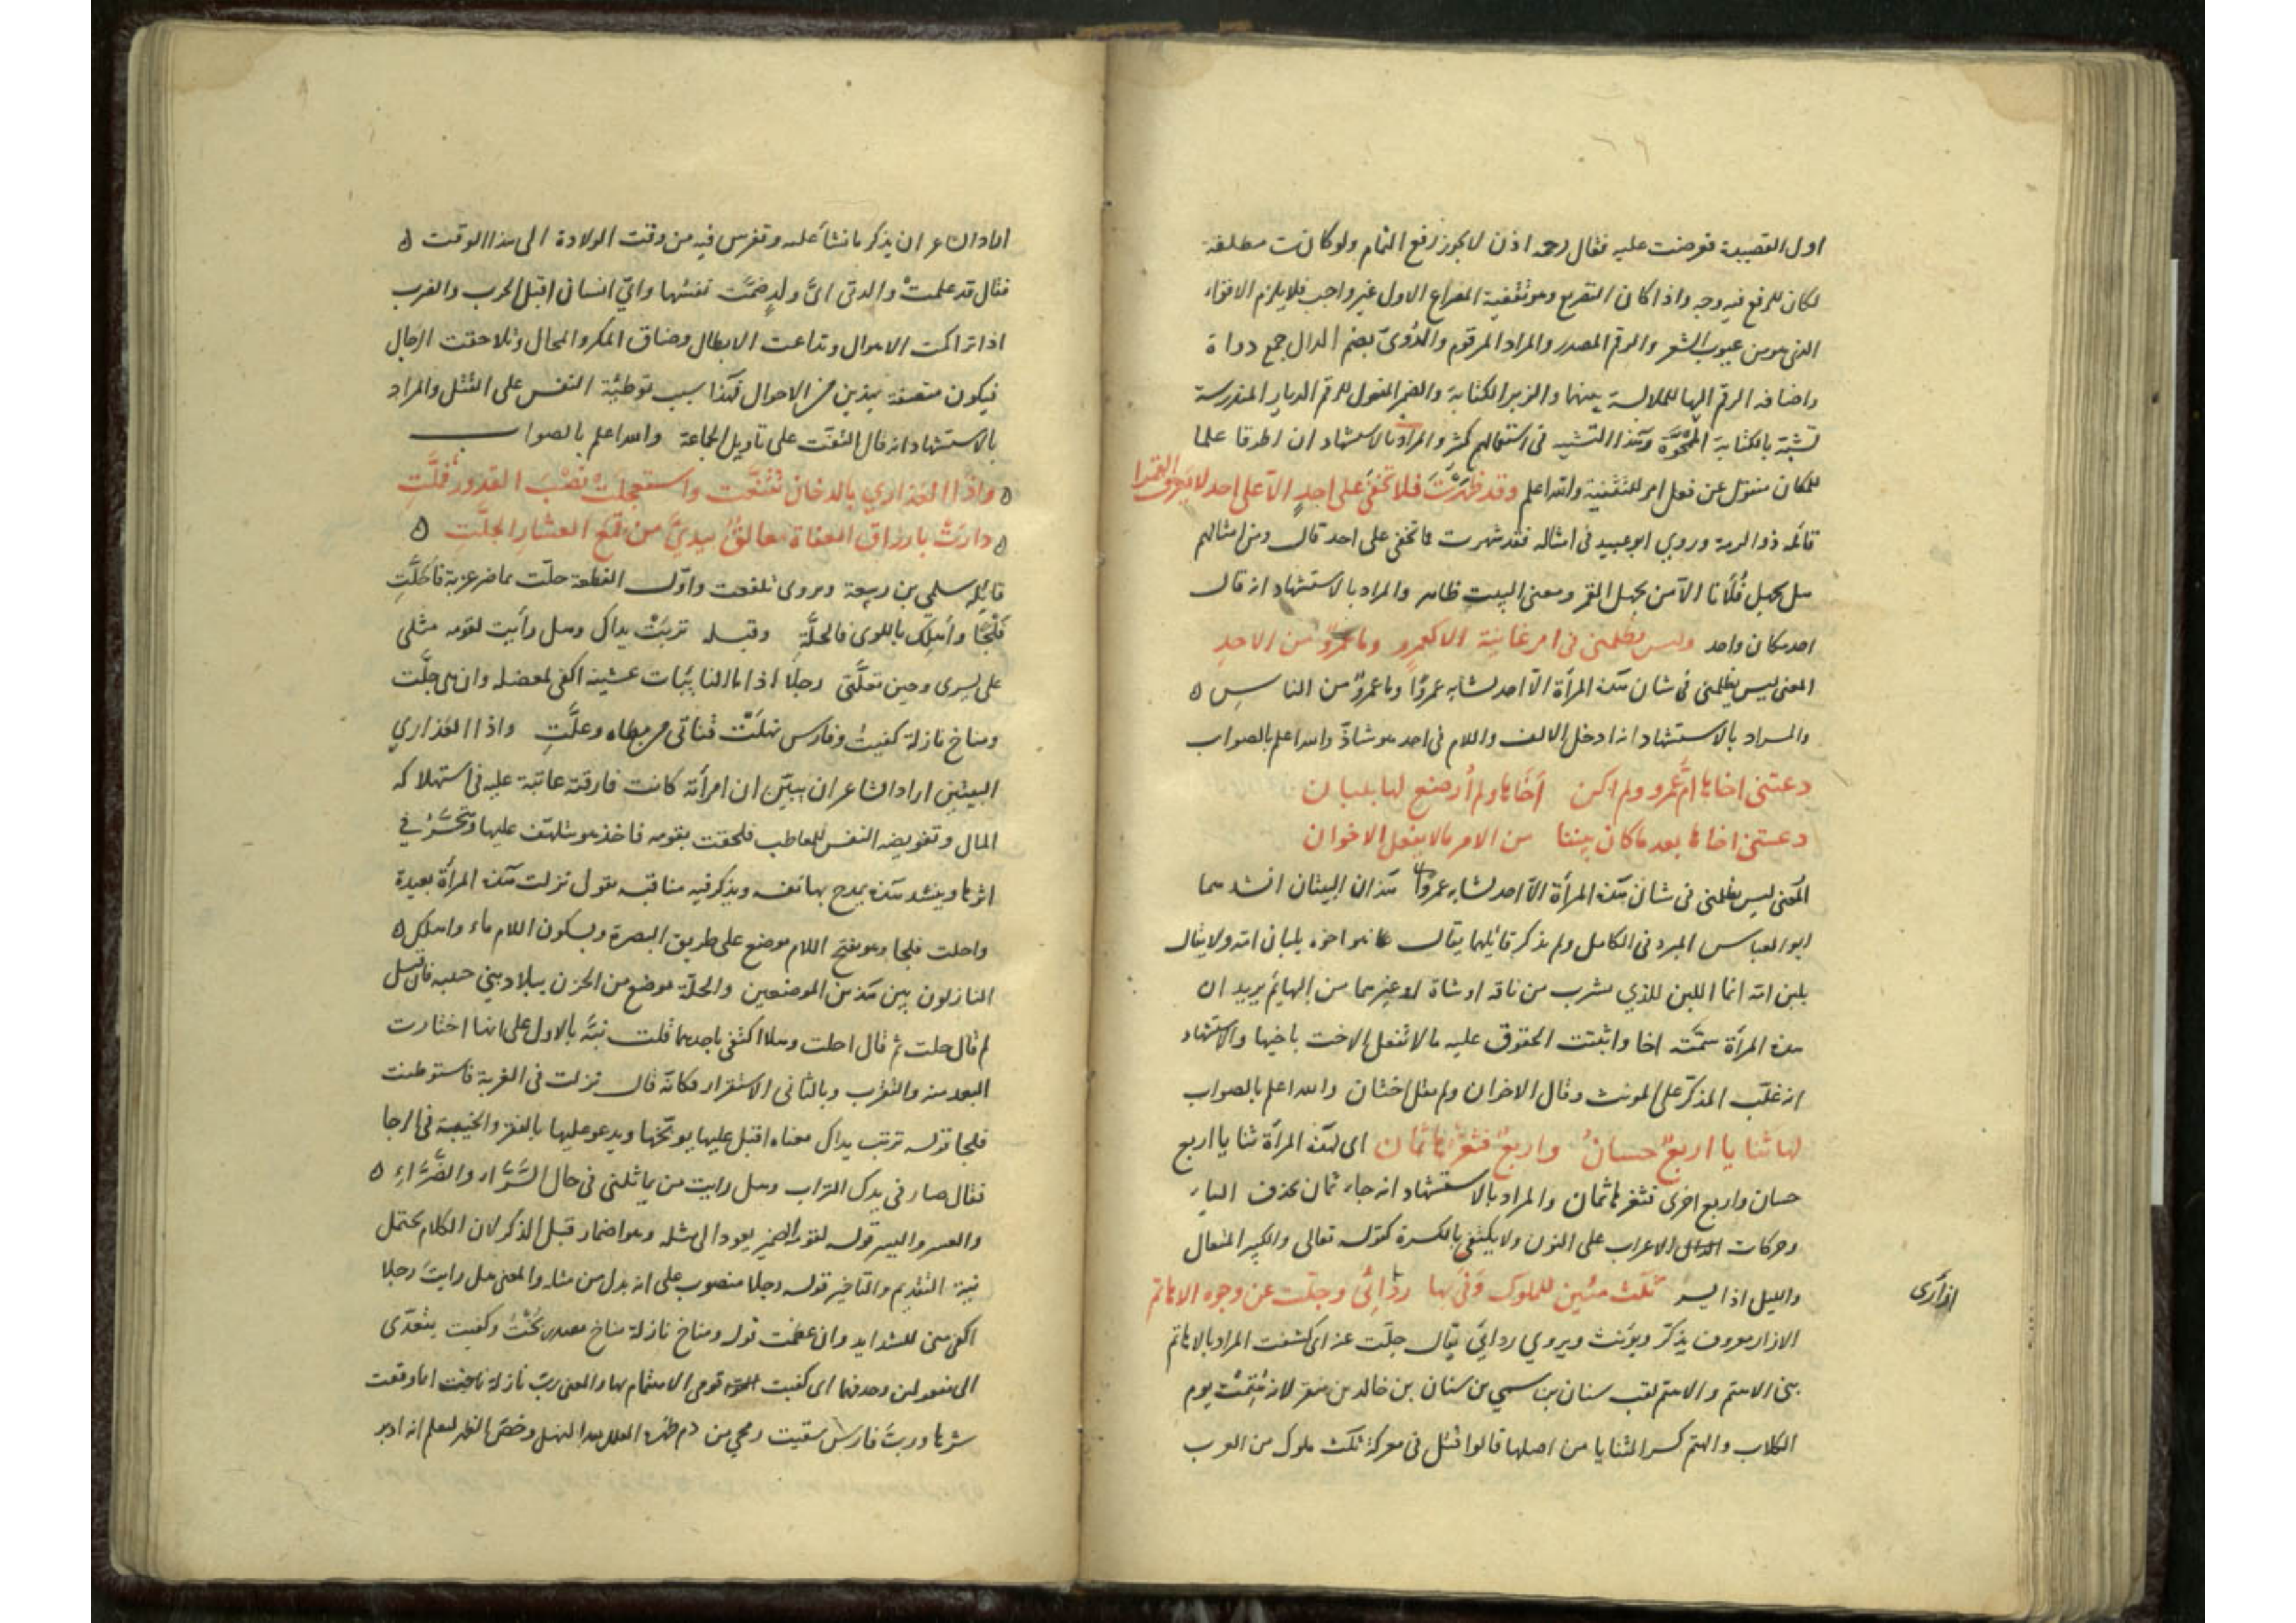 اول القصيدة فعرضت عليه فقال رحمه اذن لا يجوز رفع الثمام ولو كانت مطلقة
لكان للرفع فيه وجه واذا كان التصريع وهو تقفية المصراع الاول غير واجب فلا يلزم الاقواء
الذي هو من عيوب الشعر والرقم المصدر والمراد المرقوم والدُّوىّ بضم الدال جمع دواة
واضافة الرقم اليها للملابسة بينهما والزبر الكتابة والضمير المفعول للرقم الديار المندرسة
تشبه بالكتابة الممحوّة وهذا التشبيه في استعمالهم كثر والمراد بالاستشهاد ان اطرقا علما
للمكان منقول عن فعل امر للتثنية والله اعلم وقد ظهرتَ فلا تخفى على احدٍ الّا على احد لا يعرف القمرا
قائله ذو الرمة وروي ابو عبيد في امثاله فقد شهرت فما تخفى على احد قال ومن امثالهم
هل يجهل فُلانا الّا من يجهل القمر ومعنى البيت ظاهر والمراد بالاستشهاد انه قال
احد مكان واحد وليس يظلمني في امر غانية الا كعمرو وما عمروٌ من الاحدِ
المعنى ليس يظلمني في شان هذه المرأة الّا احد لشابه عمروًا وما عمروٌ من الناسِ ه
والمراد بالاستشهاد انه ادخل الالف واللام في احد هو شاذّ والله اعلم بالصواب
دعتني اخاها امُّ عمرو ولم اكن أخاها ولم أُرضع لها بلبان
دعتني اخاها بعد ما كان بيننا من الامر ما لا يفعل الاخوان
المعنى ليس يظلمني في شان هذه المرأة الّا احد لشابه عمروًا هذان البيتان انشدهما
ابو العباس المبرد في الكامل ولم يذكر قائلهما يقال هو اخوه بلبان امّه ولا يقال
بلبن امّه انما اللبن للذي يشرب من ناقة او شاة او غيرهما من البهائم يريد ان
هذه المرأة سمّته اخا واثبتت الحقوق عليه ما لا تفعل الاخت باخيها والاستشهاد
انه غلّب المذكّر على المونث وقال الاخوان ولم يقل اختان والله اعلم بالصواب
لها ثنايا اربعٌ حسانُ واربعٌ فثغرُها ثمان اى لهذه المرأة ثنايا اربع
حسان واربع اخرى فثغرها ثمان والمراد بالاستشهاد انه جاء ثمان بحذف الياء
وحركات الاعراب على النون ولا يكتفي بالكسرة كقوله تعالى والكبير المتعال
والليل اذا يسر ثلث مئين للملوك وَفَى بها ردائى وجلّت عن وجوه الاهاتم
ازارى
الازار معروف يذكّر ويؤنث ويروي ردايي يقال جلّت عنه اي كشفت المراد بالاهاتم
بني الاهتم والاهتم لقب سنان بن سمي بن سنان بن خالد بن منقر لانه هُتِمت يوم
الكلاب والهتم كسر الثنايا من اصلها قالوا قتل في معركة ثلث ملوك من العرب
اراد الشاعر ان يذكر ما نشأ عليه وتفرس فيه من وقت الولادة الى هذا الوقت ه
فقال قد علمتْ والدتى اىَّ ولدٍ ضمّت نفسُها وايّ انسان اقبل الحرب والضرب
اذا تراكمت الاهوال وتداعت الابطال وضاق المكر والمحال وتلاحقت الرجال
فيكون متصفة بهذين من الاحوال فهذا سبب توطئة النفس على القتل والمراد
بالاستشهاد انه قال التفّت على تاويل الجماعة والله اعلم بالصواب
ه واذا العذاري بالدخان تقنّعت واستعجلتْ نصْبَ القدور فملَّتِ
ه دارتْ بارزاق العفاة مغالقٌ بيديَّ من قمع العشارِ الجلّتِ ه
قائله سلمى بن ربيعة ويروى تلفعت واوّل القطعة حلّت تماضر غربة فاحتلّتِ
فَلْجًا واهلك باللوى فالحلّةِ وقبله تربتْ يداك وهل رأيت لقومه مثلى
على يسرى وحين تعلّتى رجلًا اذا ما النائبات غشينه اكفى لمعضلة وان هى جلّت
ومناخ نازلة كفيتُ وفارس نهلَتْ قناتى من مطاه وعلّتِ واذا العذاري
البيتين اراد الشاعر ان يبيّن ان امرأته كانت فارقته عاتبة عليه في استهلاكه
المال وتعريضه النفس للمعاطب فلحقت بقومه فاخذ هو يتلهّف عليها ويتحسّر في
اثرها وينشد هذه يمدح بها نفسه ويذكر فيه مناقبه يقول نزلت هذه المرأة بعيدة
واحلت فلجا وهو بفتح اللام موضع على طريق البصرة وبسكون اللام ماء واهلك ه
النازلون بين هذين الموضعين والحلّة موضع من الحزن ببلاد بني ضبه فان قيل
لم قال حلت ثم قال احلت وهلا اكتفى باحدهما قلت نبّه بالاول على انها اختارت
البعد منه والتغرب وبالثاني الاستقرار فكانّه قال نزلت في الغربة فاستوطنت
فلجا قوله تربت يداك معناه اقبل عليها يوبّخها ويدعو عليها بالفقر والخيبة في الرجا
فقال صار في يدك التراب وهل رايت من يماثلنى في حال السَّرّاء والضَّرّاءِ ه
والعسر واليسر قوله لقومه الضمير يعود الى مثله وهو اضمار قبل الذكر لان الكلام يحتمل
نية التقديم والتاخير قوله رجلا منصوب على انه بدل من مثله والمعنى هل رايت رجلا
اكفى منى للشدايد وان عظمت قوله ومناخ نازلة مناخ مصدر انختُ وكفيت يتعدّى
الى مفعولين وحذفهما اى كفيت قومى الاهتمام بها والمعنى ربّ نازلة اناخت اى وقعت
شرها وربَّ فارسٍ سقيت رمحي من دم ظهره العلل بعد النهل وخصّ الظهر ليعلم انه ادبر